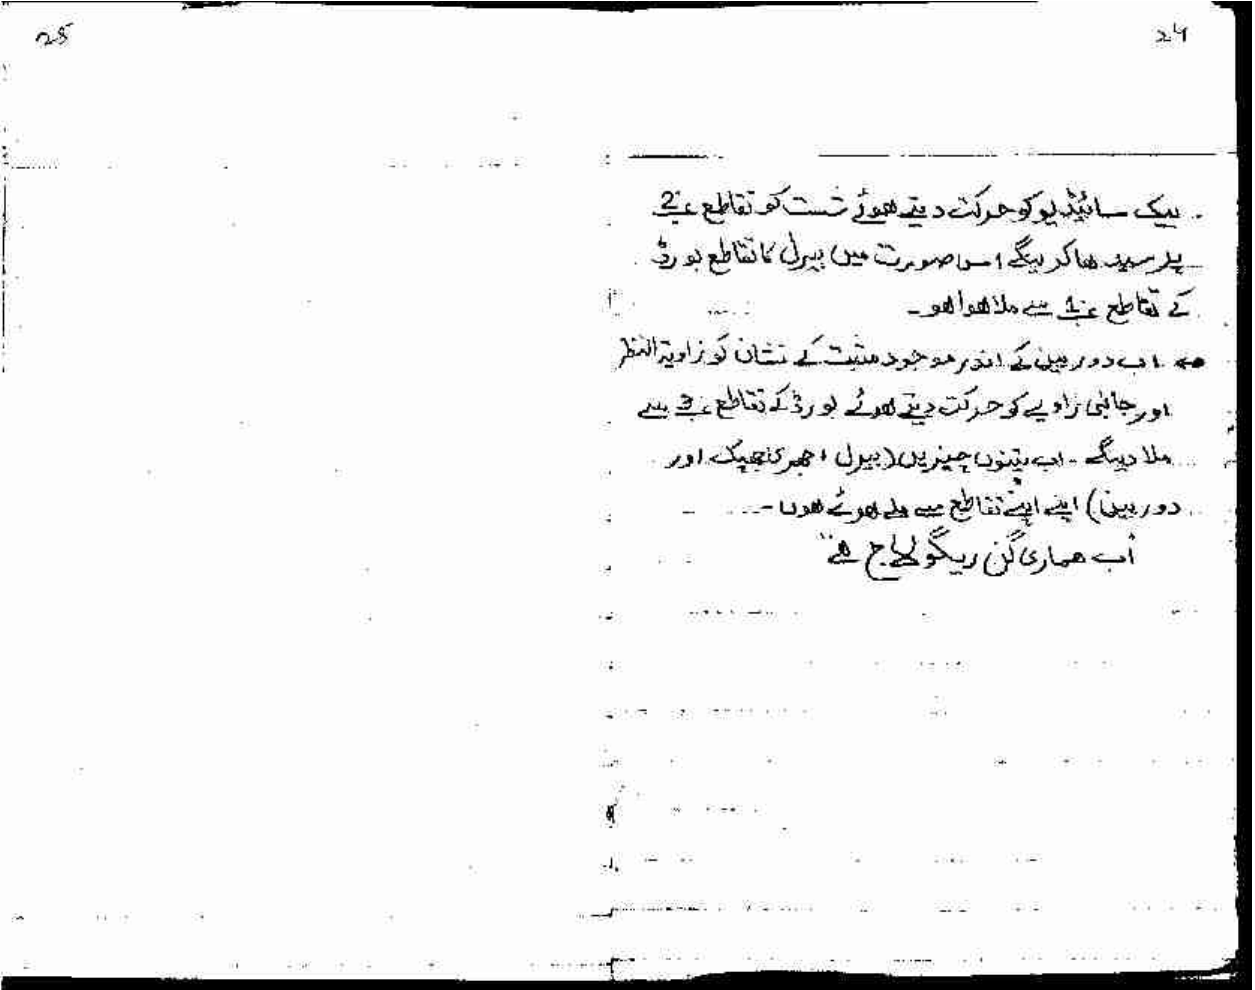 24
بیک سائیڈیو کو حرکت دیتے ھوئے شست کو تقاطع نمبر 2
پر سیدھا کرینگے اس صورت میں بیرل کا تقاطع بورڈ
کے تقاطع نمبر 1 سے ملا ھوا ھو۔
اب دوربین کے اندر موجود مثبت کے نشان کو زاویۃ النظر
اور جانبی زاویے کو حرکت دیتے ھوئے بورڈ کے تقاطع نمبر 3 سے
ملا دینگے ۔ اب تینوں چیزیں (بیرل ، اور
دوربین) اپنے اپنے تقاطع سے ملے ھوئے ھوں ۔
اب ھماری گن ریگولیٹ ھے"
25